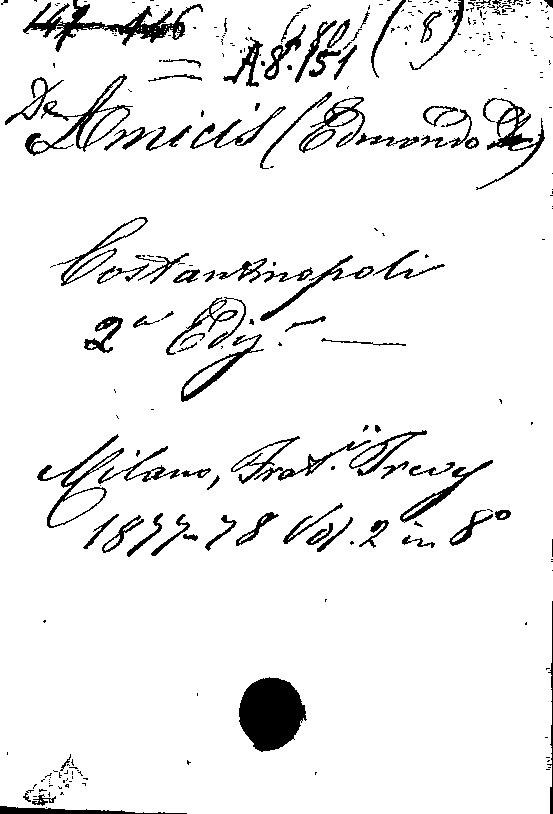 A.8.151 (8)
De Amicis (Edmondo
Costantinopoli
2a Ediz.
Milano, Frat.ii Treves
1877-78 Vol. 2 in 8°